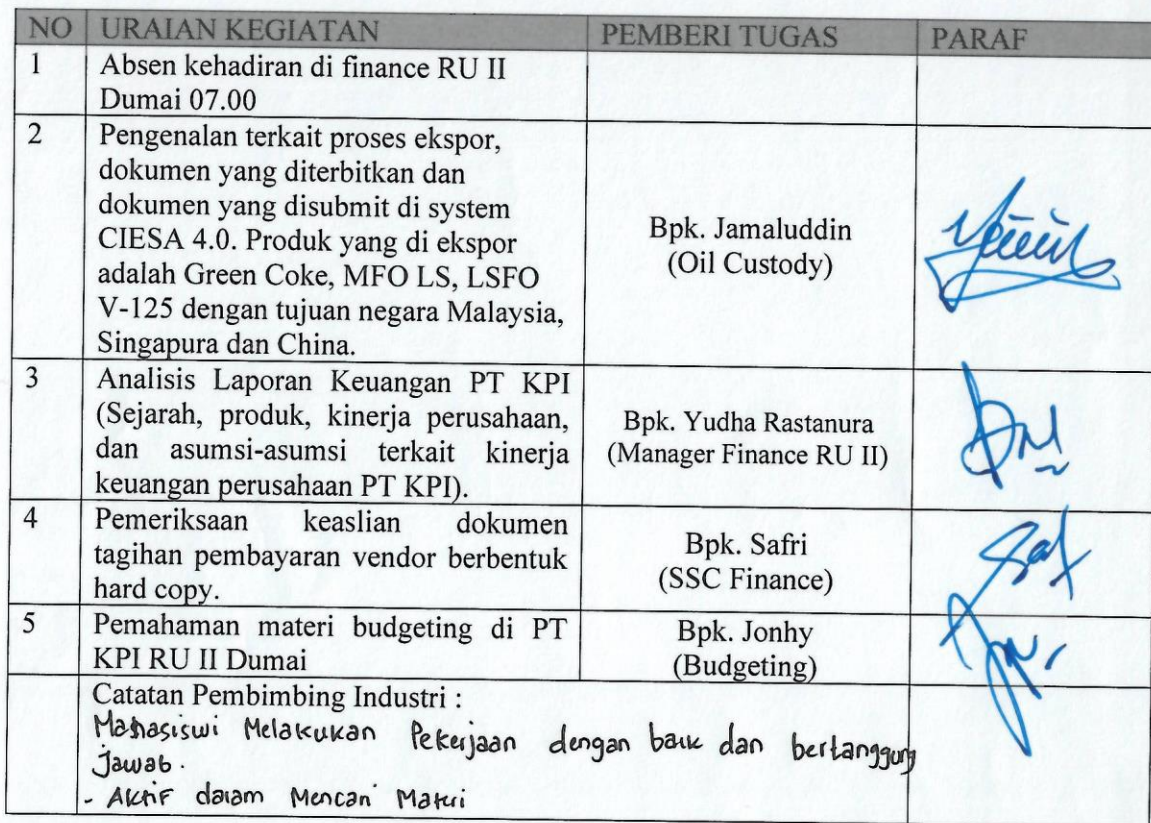 NO URAIAN KEGIATAN PEMBERI TUGAS PARAF
1 Absen kehadiran di finance RU II
Dumai 07.00
2 Pengenalan terkait proses ekspor,
dokumen yang diterbitkan dan
dokumen yang disubmit di system
CIESA 4.0. Produk yang di ekspor
adalah Green Coke, MFO LS, LSFO
V-125 dengan tujuan negara Malaysia,
Singapura dan China.
Bpk. Jamaluddin
(Oil Custody)
3 Analisis Laporan Keuangan PT KPI
(Sejarah, produk, kinerja perusahaan,
dan asumsi-asumsi terkait kinerja
keuangan perusahaan PT KPI).
Bpk. Yudha Rastanura
(Manager Finance RU II)
4 Pemeriksaan keaslian dokumen
tagihan pembayaran vendor berbentuk
hard copy.
Bpk. Safri
(SSC Finance)
5 Pemahaman materi budgeting di PT
KPI RU II Dumai
Bpk. Jonhy
(Budgeting)
Catatan Pembimbing Industri :
Mahasiswi Melakukan Pekerjaan dengan baik dan bertanggung
Jawab.
- Aktif dalam Mencari Materi